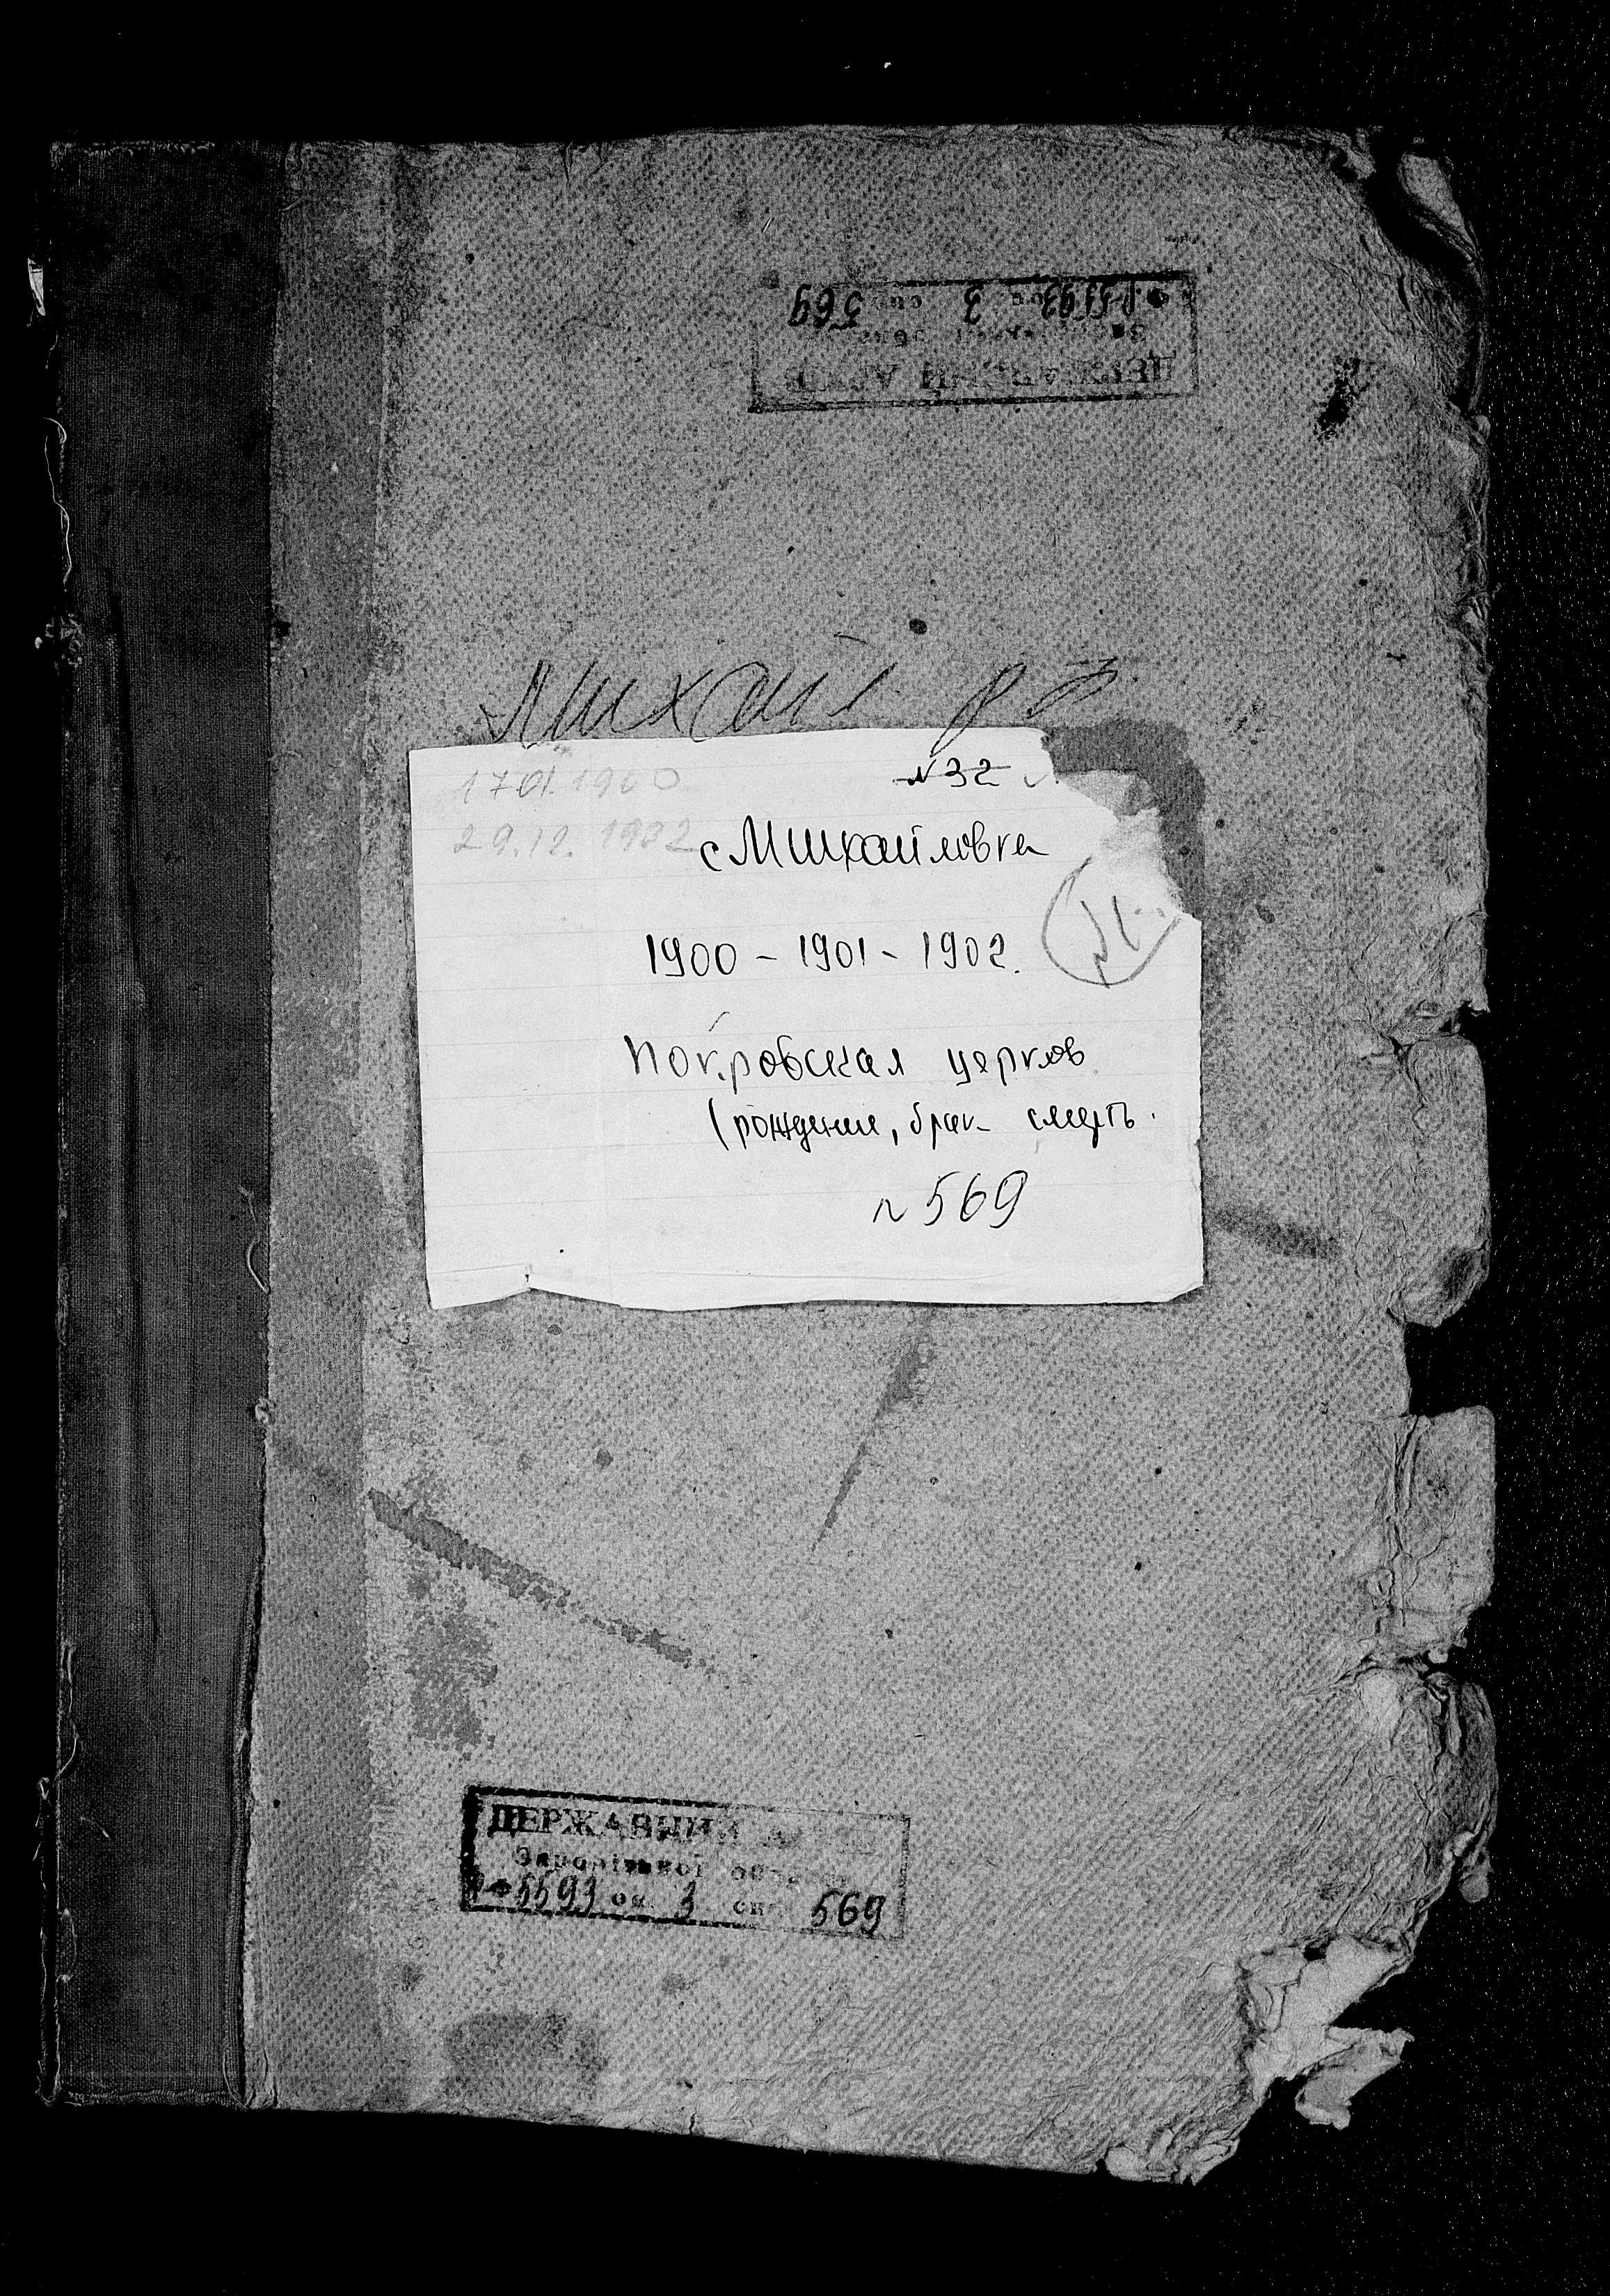 Р-5593 оп. 3 спр. 569
Михайл р-з
№32
17.01.1900
29.12.1902
с Михайловка
1900 - 1901 - 1902.
Покровская церков
(рождение, брак смерть.
№ 569
ДЕРЖАВНИЙ АРХІВ
Запорізької області
Р-5593 оп. 3 спр. 569